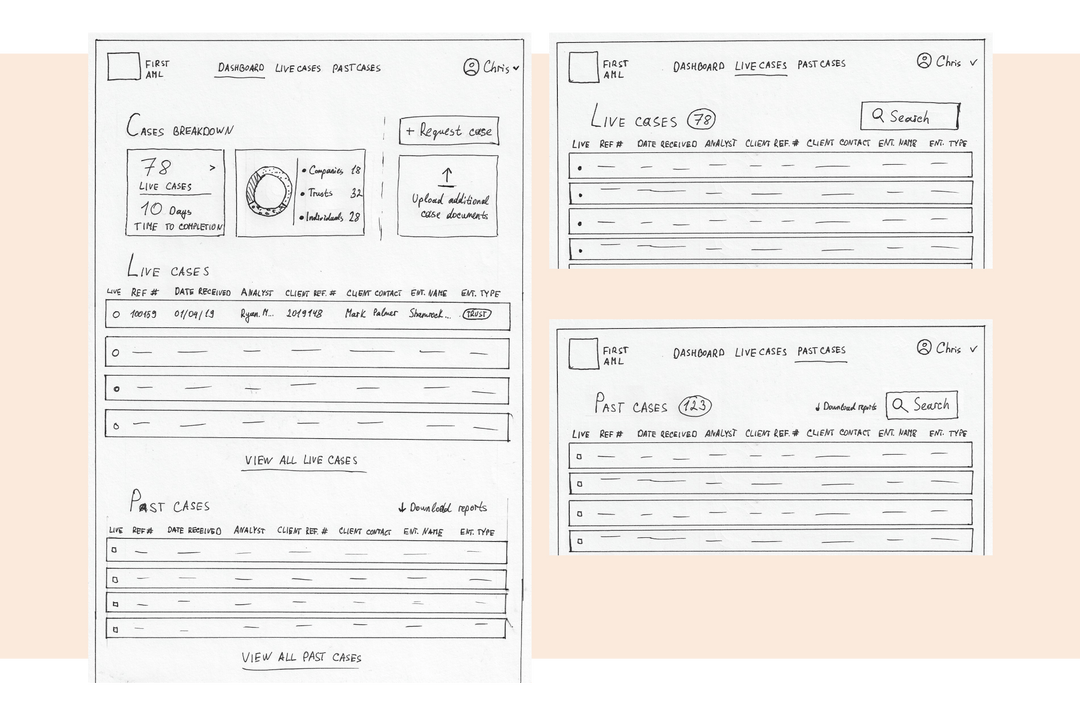 FIRST AML
DASHBOARD LIVE CASES PAST CASES
Chris
CASES BREAKDOWN
78
LIVE CASES
10 Days
TIME TO COMPLETION
• Companies 18
• Trusts 32
• Individuals 28
+ Request case
Upload additional
case documents
LIVE CASES
LIVE REF # DATE RECEIVED ANALYST CLIENT REF. # CLIENT CONTACT ENT. NAME ENT. TYPE
100159 01/04/19 Ryan. M... 2019148 Mark Palmer Shamrock... TRUST
VIEW ALL LIVE CASES
PAST CASES
↓ Download reports
LIVE REF # DATE RECEIVED ANALYST CLIENT REF. # CLIENT CONTACT ENT. NAME ENT. TYPE
VIEW ALL PAST CASES
FIRST AML
DASHBOARD LIVE CASES PAST CASES
Chris
LIVE CASES 78
Search
LIVE REF # DATE RECEIVED ANALYST CLIENT REF. # CLIENT CONTACT ENT. NAME ENT. TYPE
FIRST AML
DASHBOARD LIVE CASES PAST CASES
Chris
PAST CASES 123
↓ Download reports
Search
LIVE REF # DATE RECEIVED ANALYST CLIENT REF. # CLIENT CONTACT ENT. NAME ENT. TYPE